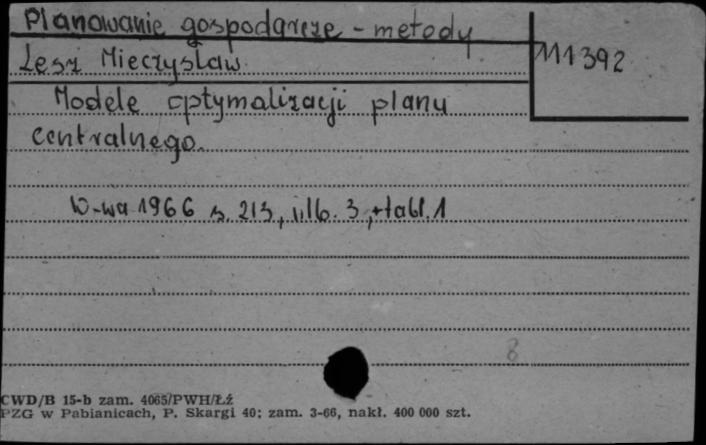 Planowanie gospodarcze - metody
111392
Lesz Mieczysław
Modele optymalizacji planu
centralnego.
W-wa 1966 s. 213, nlb. 3, + tabl. 1
8
CWD/B 15-b zam. 4065/PWH/Łź
PZG w Pabianicach, P. Skargi 40; zam. 3-66, nakł. 400 000 szt.